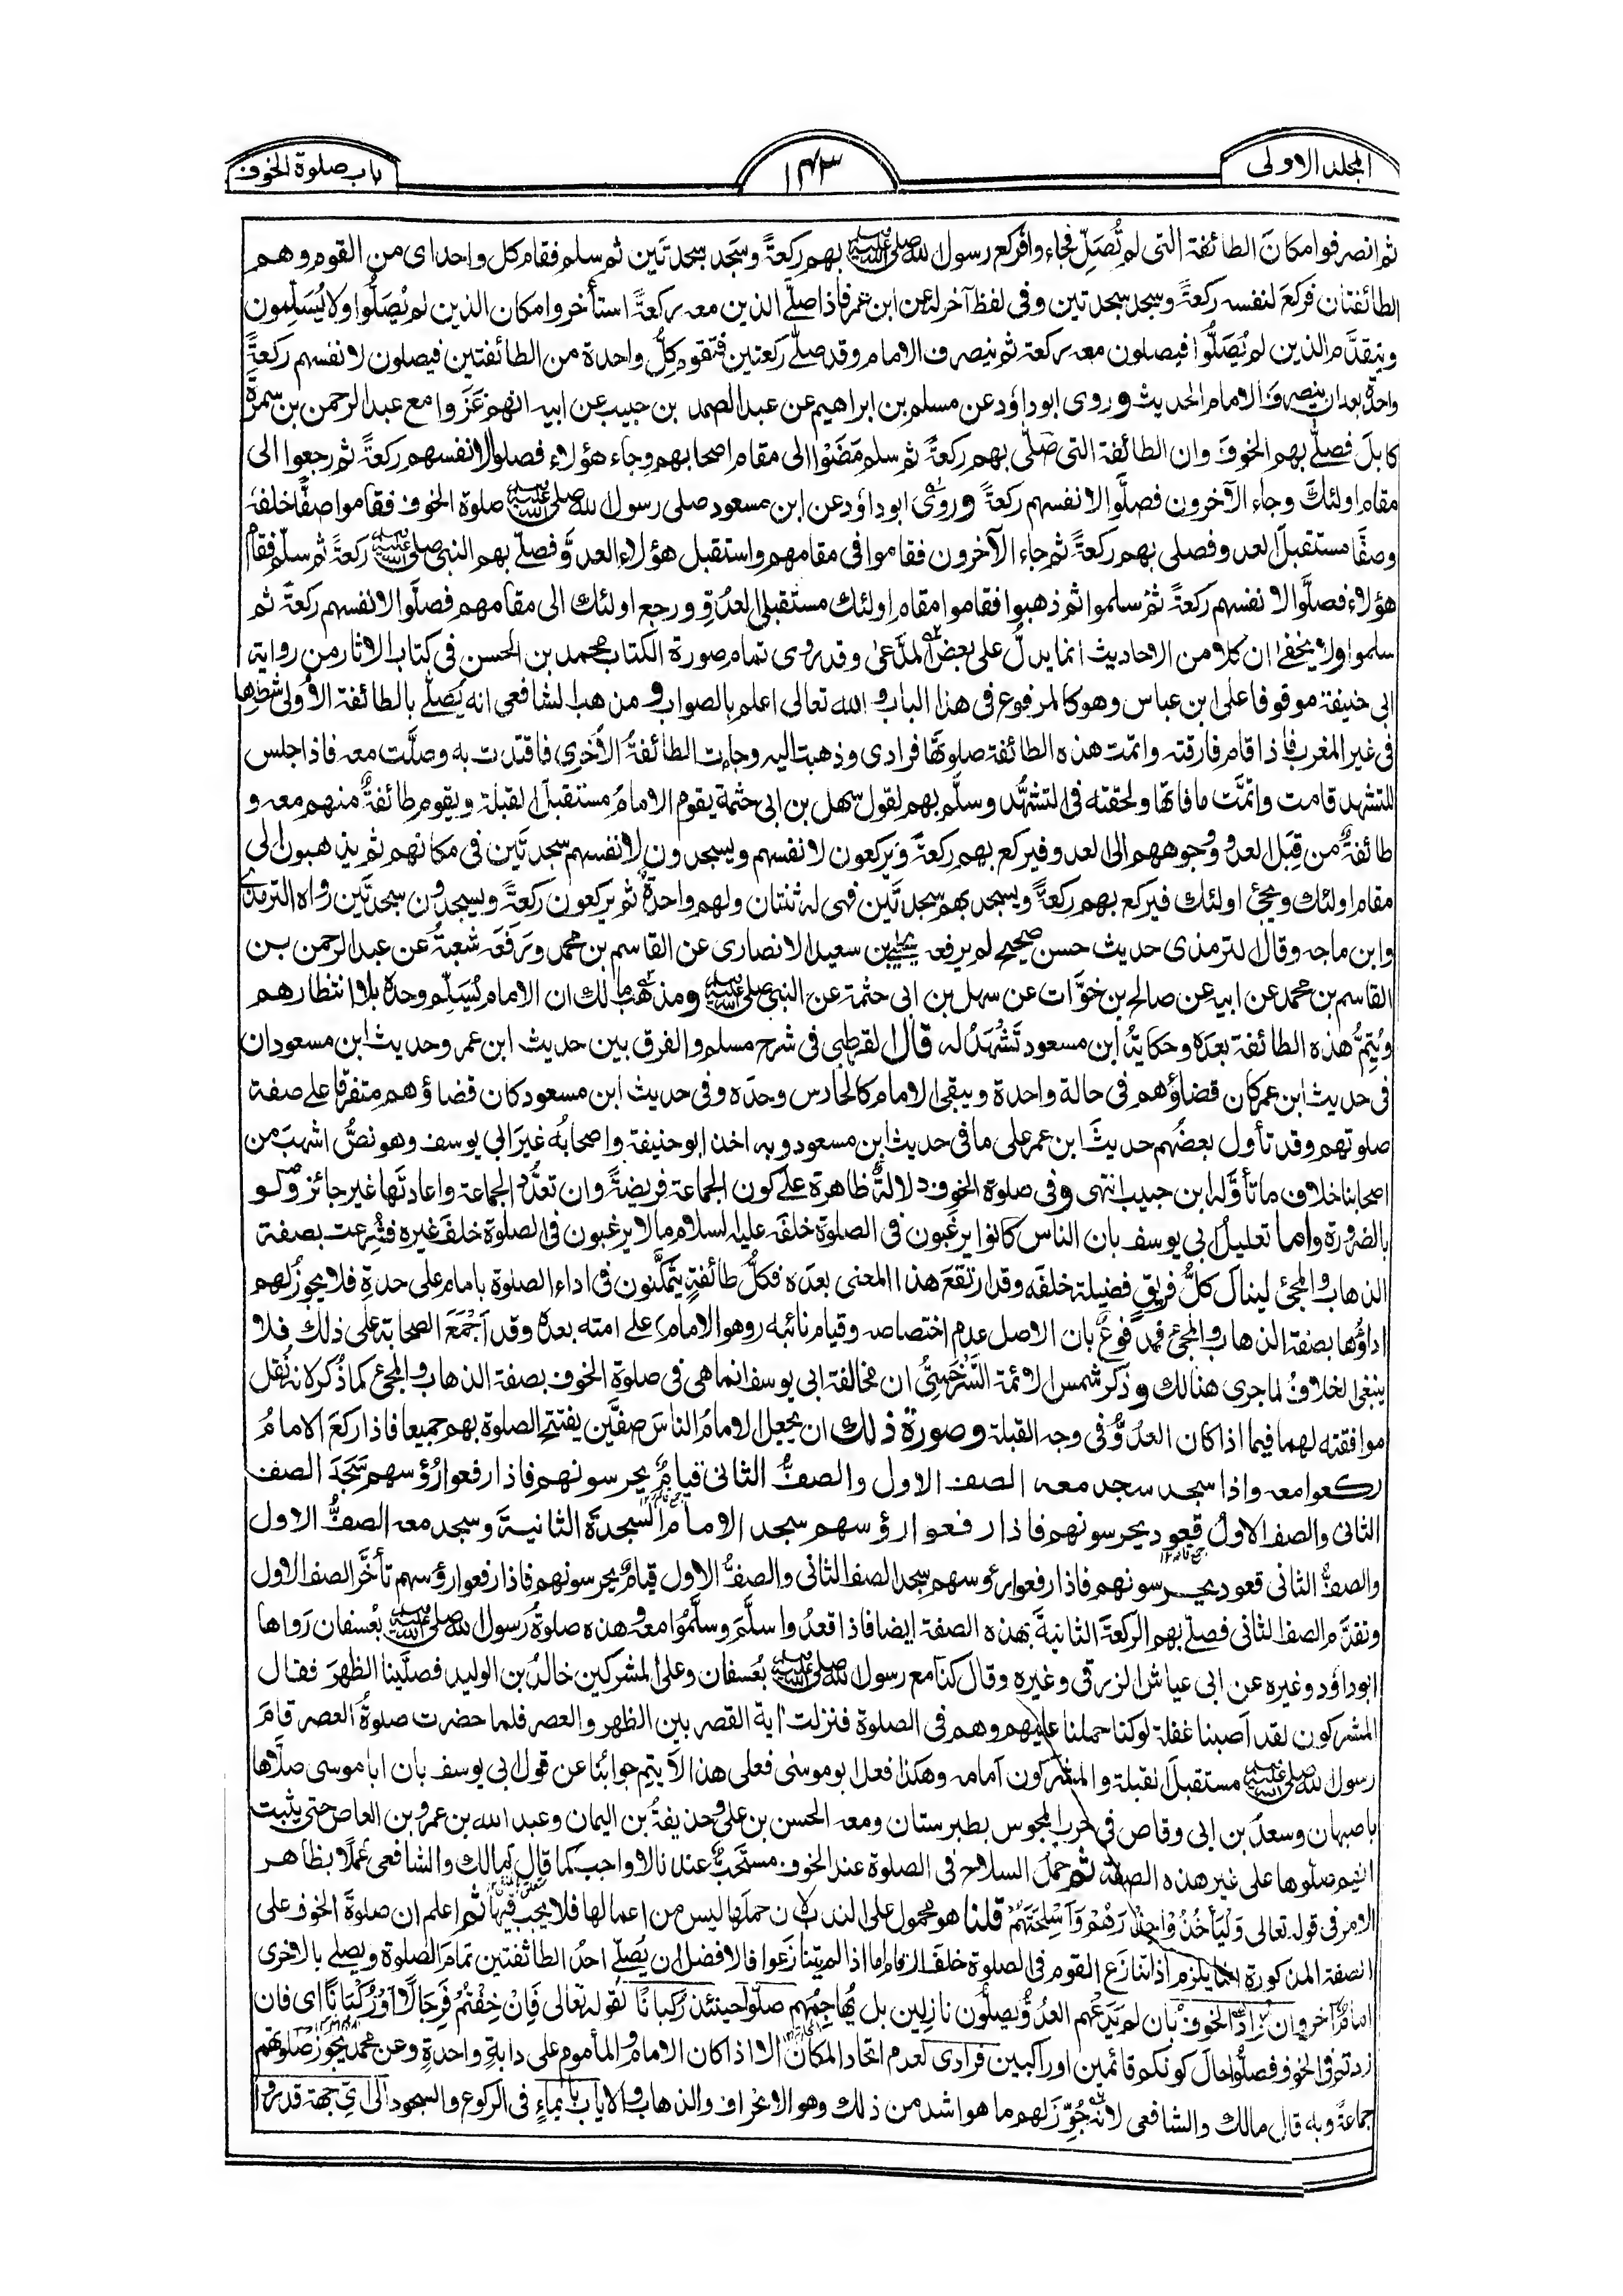 المجلد الاولى
١٤٣
باب صلوة الخوف
ثم انصرفوا مكانَ الطائفة التى لم تُصَلِّ فجاءوا فركع رسول الله صلى الله عليه وسلم بهم ركعةً وسجَد سجدتَين ثم سلم فقام كل واحد اى من القوم وهم
الطائفتان فركعَ لنفسه ركعةً وسجد سجدتين وفى لفظ آخر له عن ابن عمر فاذا صلّى الذين معه ركعةً استأخروا مكان الذين لم يُصَلُّوا ولا يُسَلِّمون
ويتقدَّم الذين لم يُصَلُّوا فيصلون معه ركعة ثم ينصرف الامام وقد صلّى ركعتين فتقوم كلُّ واحدة من الطائفتين فيصلون لانفسهم ركعةً
واحدة بعد ان ينصرفَ الامام الحديث وروى ابو داؤد عن مسلم بن ابراهيم عن عبد الصمد بن حبيب عن ابيه انهم غَزَوا مع عبد الرحمن بن سمرة
كابلَ فصلّى بهم الخوفَ وان الطائفة التى صَلّى بهم ركعةً ثم سلم مَضَوْا الى مقام اصحابهم وجاء هؤلاء فصلوا لانفسهم ركعةً ثم رجعوا الى
مقام اولئكَ وجاء الآخرون فصلَّوا لانفسهم ركعةً وروى ابو داؤد عن ابن مسعود صلى رسول الله صلى الله عليه وسلم صلوة الخوف فقاموا صفًّا خلفَه
وصفًّا مستقبلَ العدو فصلى بهم ركعةً ثم جاء الآخرون فقاموا فى مقامهم واستقبل هؤلاء العدوَّ فصلّى بهم النبى صلى الله عليه وسلم ركعةً ثم سلّم فقام
هؤلاء فصلَّوا لانفسهم ركعةً ثم سلموا ثم ذهبوا فقاموا مقام اولئك مستقبلى العدُوِّ ورجع اولئك الى مقامهم فصلَّوا لانفسهم ركعةً ثم
سلموا ولا يخفى ان كلا من الاحاديث انما يدلُّ على بعض المدّعى وقد روى تمام صورة الكتاب محمد بن الحسن فى كتاب الاثار من رواية
ابى حنيفة موقوفا على ابن عباس وهو كالمرفوع فى هذا الباب والله تعالى اعلم بالصواب ومذهب الشافعى انه يُصَلّى بالطائفة الأولى شطرها
فى غير المغرب فاذا قام فارقته واتمت هذه الطائفة صلوتَها فرادى وذهبت اليه وجاءت الطائفةُ الأخرى فاقتدت به وصلَّت معه فاذا جلس
للتشهد قامت واتمَّت ما فاتها ولحقته فى التشهُّد وسلَّم بهم لقول سهل بن ابى حثمة يقوم الامامُ مستقبلَ القبلة ويقوم طائفةٌ منهم معه و
طائفةٌ من قِبَل العدو ووجوههم الى العدو فيركع بهم ركعةً ويَركعون لانفسهم ويسجدون لانفسهم سجدتَين فى مكانهم ثم يذهبون الى
مقام اولئك ويجئ اولئك فيركع بهم ركعةً ويسجد بهم سجدتَين فهى له ثنتان ولهم واحدةٌ ثم يركعون ركعةً ويسجدون سجدتَين رواه الترمذى
وابن ماجه وقال الترمذى حديث حسن صحيح لم يرفعه يحيى بن سعيد الانصارى عن القاسم بن محمد ورَفعَه شعبةُ عن عبد الرحمن بن
القاسم بن محمد عن ابيه عن صالح بن خوّات عن سهل بن ابى حثمة عن النبى صلى الله عليه وسلم ومذهب مالك ان الامام يُسَلِّم وحدَه بلا انتظارهم
ويُتِمُّ هذه الطائفة بعدَه وحكايةُ ابن مسعود تَشْهَدُ له قال القرطبى فى شرح مسلم والفرق بين حديث ابن عمر وحديث ابن مسعود ان
فى حديث ابن عمر كان قضاؤهم فى حالة واحدة ويبقى الامام كالحارس وحدَه وفى حديث ابن مسعود كان قضاؤهم متفرقا على صفة
صلوتهم وقد تأول بعضُهم حديثَ ابن عمر على ما فى حديث ابن مسعود وبه اخذ ابو حنيفة واصحابُه غيرَ ابى يوسف وهو نصُّ اشهبَ من
اصحابنا خلاف ما تأوَّله ابن حبيب انتهى وفى صلوة الخوف دلالةٌ ظاهرة على كون الجماعة فريضةً وان تعدُّد الجماعة واعادتَها غير جائز ولو
بالضرورة واما تعليلُ ابى يوسف بان الناس كانوا يرغبون فى الصلوة خلفَه عليه السلام ما لا يرغبون فى الصلوة خلفَ غيره فشُرعت بصفة
الذهاب والمجئ لينالَ كلُّ فريقٍ فضيلةَ خلفَه وقد ارتفعَ هذا المعنى بعدَه فكلُّ طائفةٍ يتمكَّنون فى اداء الصلوة بامام على حدةٍ فلا يجوز لهم
اداؤُها بصفة الذهاب والمجئ فمدفوعٌ بان الاصل عدم اختصاصه وقيام نائبه (وهو الامام) على امته بعدَه وقد أجْمَعَ الصحابة على ذلك فلا
ينبغى الخلافُ لما جرى هنالك وذكر شمس الائمة السَّرَخسِيُّ ان مخالفة ابى يوسف انما هى فى صلوة الخوف بصفة الذهاب والمجئ كما ذُكر لانه نُقل
موافقته لهما فيما اذا كان العدُوُّ فى وجه القبلة وصورة ذلك ان يجعل الامامُ الناسَ صفَّين يفتتح الصلوة بهم جميعا فاذا ركعَ الامامُ
ركعوا معه واذا سجد سجد معه الصف الاول والصفُّ الثانى قيامٌ يحرسونهم فاذا رفعوا رُؤسهم سَجَدَ الصف
الثانى والصف الاولُ قعود يحرسونهم فاذا رفعوا رؤسهم سجد الامام السجدةَ الثانيةَ وسجد معه الصفُّ الاول
والصفُّ الثانى قعود يحرسونهم فاذا رفعوا رءوسهم سجد الصف الثانى والصفُّ الاول قيامٌ يحرسونهم فاذا رفعوا رؤسهم تأخَّر الصف الاول
وتقدَّم الصف الثانى فصلّى بهم الركعةَ الثانيةَ بهذه الصفة ايضا فاذا قعدُوا سلَّم وسلَّمُوا معه وهذه صلوةُ رسول الله صلى الله عليه وسلم بعُسفان رَواها
ابو داؤد وغيره عن ابى عياش الزرقى وغيره وقال كنا مع رسول الله صلى الله عليه وسلم بعُسفان وعلى المشركين خالدُ بن الوليد فصلَّينا الظهرَ فقال
المشركون لقد أصبنا غفلة لو كنا حملنا عليهم وهم فى الصلوة فنزلت اية القصر بين الظهر والعصر فلما حضرت صلوةُ العصر قامَ
رسول الله صلى الله عليه وسلم مستقبلَ القبلة والمشركون أمامه وهكذا فعل ابو موسى فعلى هذا لا يتم جوابُنا عن قول ابى يوسف بان ابا موسى صلَّاها
باصبهان وسعدَ بن ابى وقاص فى حرب المجوس بطبرستان ومعه الحسن بن على وحذيفةُ بن اليمان وعبد الله بن عمرو بن العاص حتى يثبت
انهم صلوها على غير هذه الصفة ثم حملُ السلاح فى الصلوة عند الخوف مستحَبٌّ عندنا لا واجب كما قال مالك والشافعى عملًا بظاهر
الامر فى قوله تعالى وَلْيَأْخُذُوْا حِذْرَهُمْ وَاَسْلِحَتَهُمْ قلنا هو محمول على الندب لان حملَها ليس من اعمالها فلا يجب فيها ثم اعلم ان صلوةَ الخوف على
الصفة المذكورة انما يلزم اذا تنازع القوم فى الصلوة خلفَ الامام اما اذا لم يتنازَعوا فالافضل ان يُصَلّى احدُ الطائفتين تمامَ الصلوة ويصلى بالاخرى
امامٌ آخر وان زادَ الخوفُ بان لم يَدَعْهم العدُوُّ يصلُّون نازلِين بل يُهاجِمُهم صلّوا حينئذ رُكبانًا لقوله تعالى فَاِنْ خِفْتُمْ فَرِجَالًا اَوْ رُكْبَانًا اى فان
زدتم فى الخوف فصلُّوا حالَ كونكم قائمين او راكبين فرادى لعدم اتحاد المكان الا اذا كان الامام والمأموم على دابةٍ واحدةٍ وعن محمد يجوز صلوتهم
جماعةً وبه قال مالك والشافعى لانه جُوِّزَ لهم ما هو اشد من ذلك وهو الانحراف والذهاب والاياب بايماءٍ فى الركوع والسجود الى اىِّ جهة قدروا